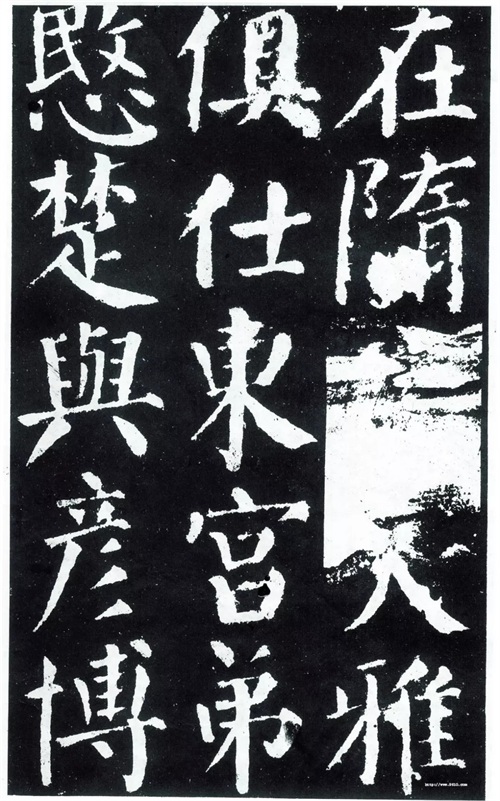 在隋大雅
俱仕東宮弟
愍楚與彥博
http://www.9610.com